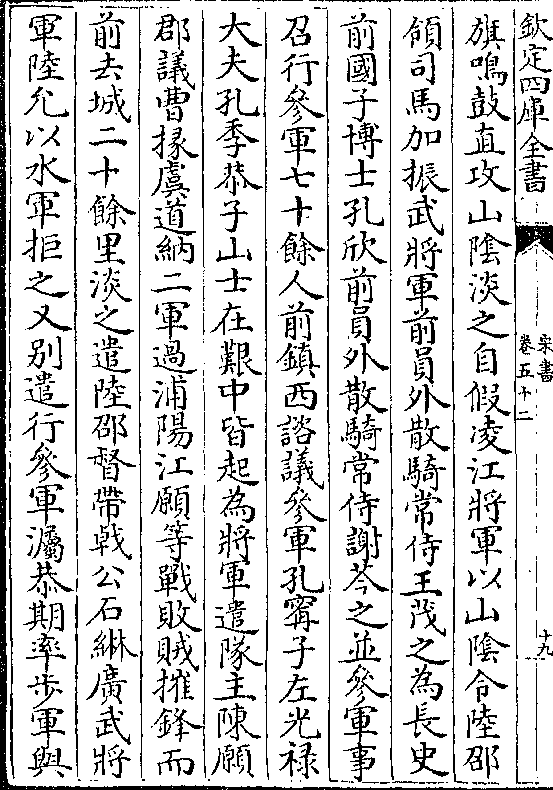 欽定四庫全書
宋書
卷五十二
十九
旗鳴鼓直攻山陰淡之自假凌江將軍以山陰令陸邵
領司馬加振武將軍前員外散騎常侍王茂之為長史
前國子博士孔欣前員外散騎常侍謝芩之並參軍事
召行參軍七十餘人前鎮西諮議參軍孔甯子左光禄
大夫孔季恭子山士在艱中皆起為將軍遣隊主陳願
郡議曹掾虞道納二軍過浦陽江願等戰敗賊摧鋒而
前去城二十餘里淡之遣陸邵督帶戟公石綝廣武將
軍陸允以水軍拒之又别遣行參軍灟恭期率步軍與